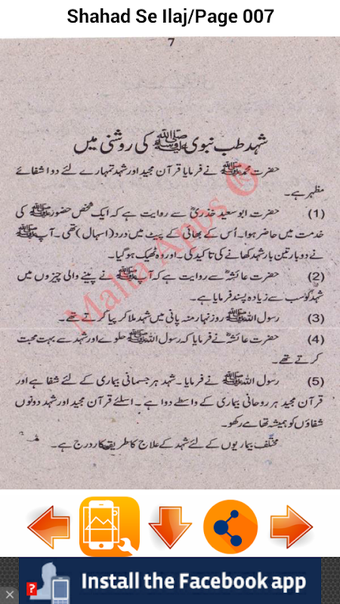 Shahad Se Ilaj/Page 007
7
شہد طب نبوی ﷺ کی روشنی میں
حضرت محمد ﷺ نے فرمایا قرآن مجید اور شہد تمہارے لئے دوا شفائے
مظہر ہے۔
(1) حضرت ابوسعید خدریؓ سے روایت ہے کہ ایک شخص حضور ﷺ کی
خدمت میں حاضر ہوا۔ اُس کے بھائی کے پیٹ میں درد (اسہال) تھی۔ آپ ﷺ
نے دو بار تین بار شہد کھانے کی تاکید کی۔ اور وہ ٹھیک ہو گیا۔
(2) حضرت عائشہؓ سے روایت ہے کہ آپ ﷺ نے پینے والی چیزوں میں
شہد کو سب سے زیادہ پسند فرمایا ہے۔
(3) رسول اللہ ﷺ روز نہار منہ پانی میں شہد ملا کر پیا کرتے تھے۔
(4) حضرت عائشہؓ نے فرمایا کہ رسول اللہ ﷺ حلوے اور شہد سے بہت محبت
کرتے تھے۔
(5) رسول اللہ ﷺ نے فرمایا۔ شہد ہر جسمانی بیماری کے لئے شفا ہے اور
قرآن مجید ہر روحانی بیماری کے واسطے دوا ہے۔ اسلئے قرآن مجید اور شہد دونوں
شفاؤں کو ہمیشہ تھامے رکھو۔
مختلف بیماریوں کے لئے شہد کے علاج کا طریقہ کار درج ہے۔
Malha Apps ©
Install the Facebook app